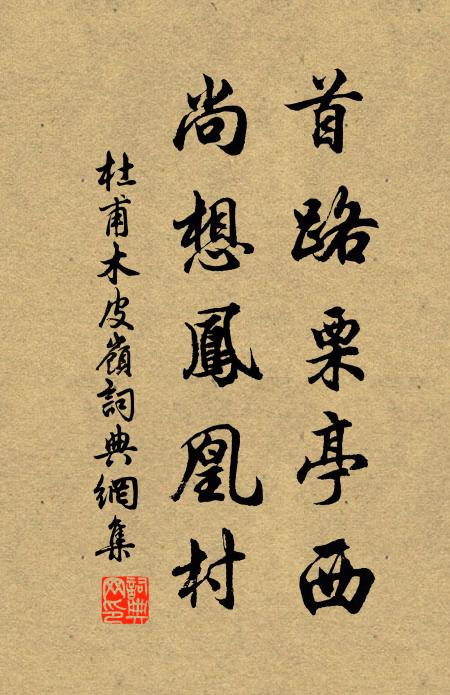 首路栗亭西
尚想鳳凰村
杜甫木皮嶺詞典網集
詞典網印